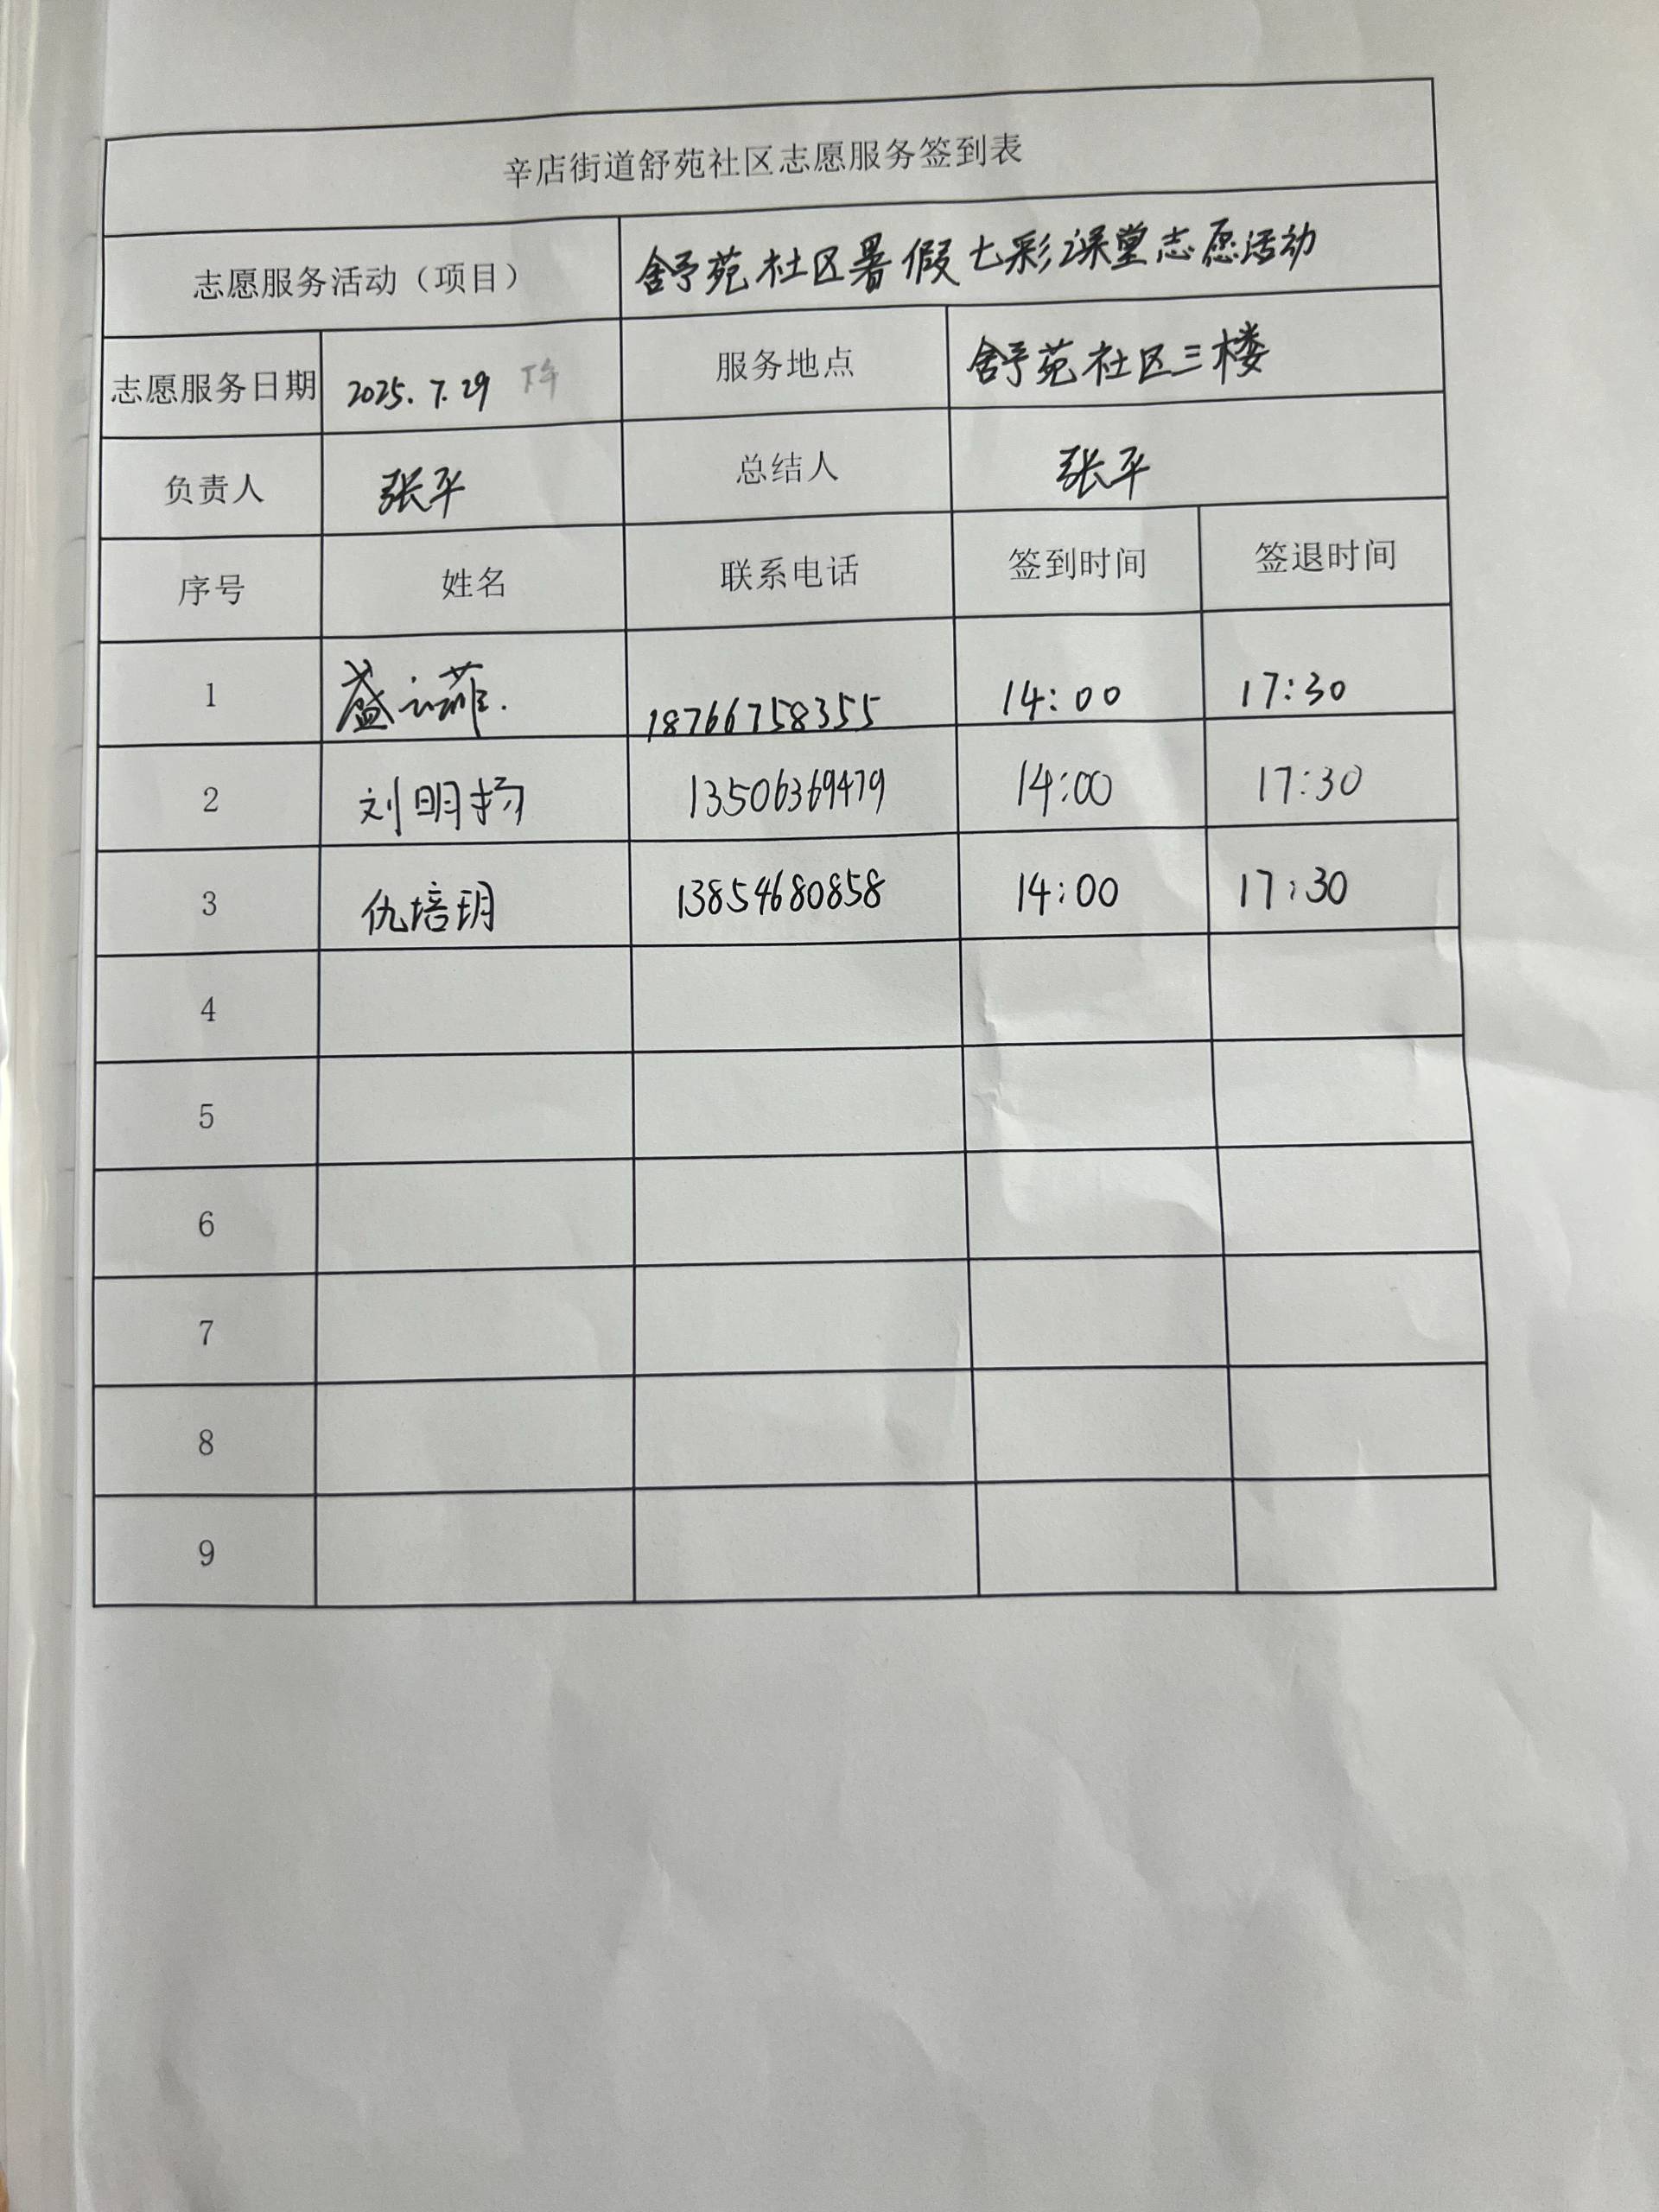 辛店街道舒苑社区志愿服务签到表
志愿服务活动（项目） 舒苑社区暑假七彩课堂志愿活动
志愿服务日期 2025.7.29 下午 服务地点 舒苑社区三楼
负责人 张平 总结人 张平
序号 姓名 联系电话 签到时间 签退时间
1 盛云菲. 18766758355 14:00 17:30
2 刘明扬 13506369479 14:00 17:30
3 仇培玥 13854680858 14:00 17:30
4
5
6
7
8
9